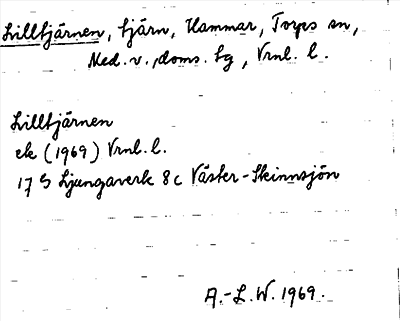 Lilltjärnen, tjärn, Hammar, Torps sn,
Med. v. doms. tg, Vrnl. l.
Lilltjärnen
ek (1969) Vrnl. l.
17 G Ljungaverk 8 c Väster-Skinnsjön
A.-L. W. 1969.